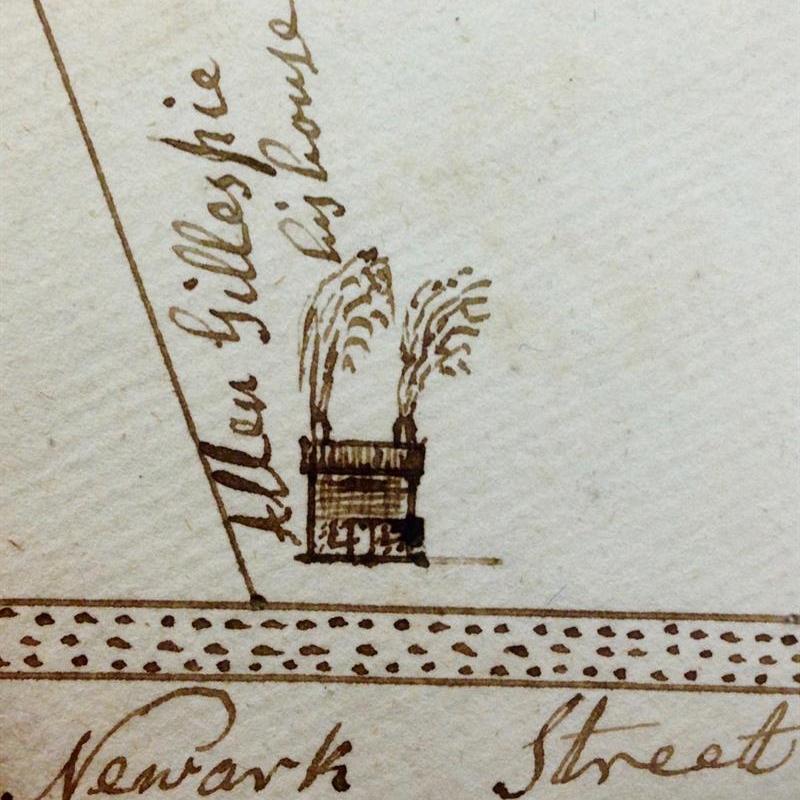 Allen Gillespie
his house
Newark Street